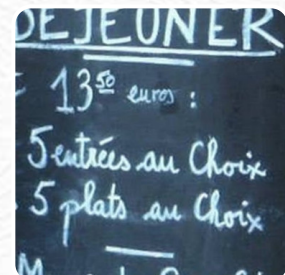 DEJEUNER
13 50 euros :
5 entrées au Choix
5 plats au Choix